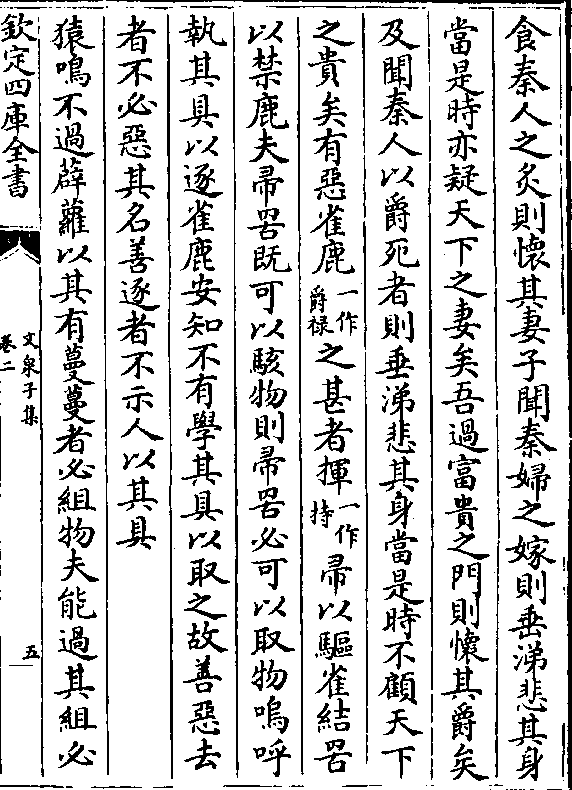 食秦人之炙則懷其妻子聞秦婦之嫁則垂涕悲其身
當是時亦疑天下之妻矣吾過富貴之門則懷其爵矣
及聞秦人以爵死者則垂涕悲其身當是時不顧天下
之貴矣有惡雀鹿一作爵祿之甚者揮一作持帚以驅雀結罟
以禁鹿夫帚罟既可以駭物則帚罟必可以取物嗚呼
執其具以逐雀鹿安知不有學其具以取之故善惡去
者不必惡其名善逐者不示人以其具
猿鳴不過薜蘿以其有蔓蔓者必組物夫能過其組必
欽定四庫全書
文泉子集
卷二
五